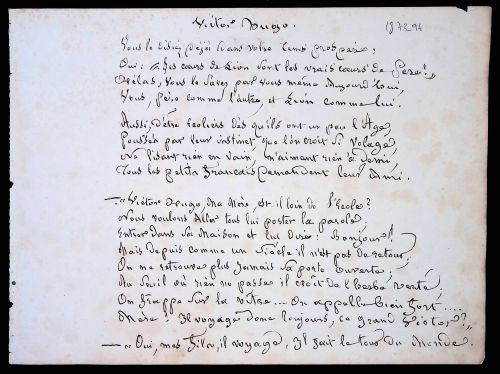 Victor Hugo.
1872-94
Vous le disiez déjà dans votre temps prospère:
Oui: "Les cœurs de Lion sont les vrais cœurs de Père!"
Hélas, vous le savez par vous même Aujourd'hui,
Vous, père comme l'autre, et Lion comme lui.
Aussi, d'être Ecoliers dès qu'ils ont un peu l'Age,
Poussés par leur instinct que l'on croit si volage
Ne lisant rien en vain, n'aimant rien à demi,
Tous les petits Français demandent leur Ami.
— "Victor Hugo, Ma Mère, est-il loin de l'Ecole?
Nous voulons Aller tous lui porter la parole,
Entrer dans sa Maison et lui dire: Bonjour!
Mais depuis comme un siècle il n'est pas de retour;
On ne retrouve plus jamais sa porte ouverte;
Au seuil où rien ne passe il croît de l'herbe verte;
On frappe sur la vitre.... On appelle bien fort....
Mère! Il voyage donc toujours, ce grand Victor?"
— "Oui, mes fils, il voyage, Il fait le tour du Monde.